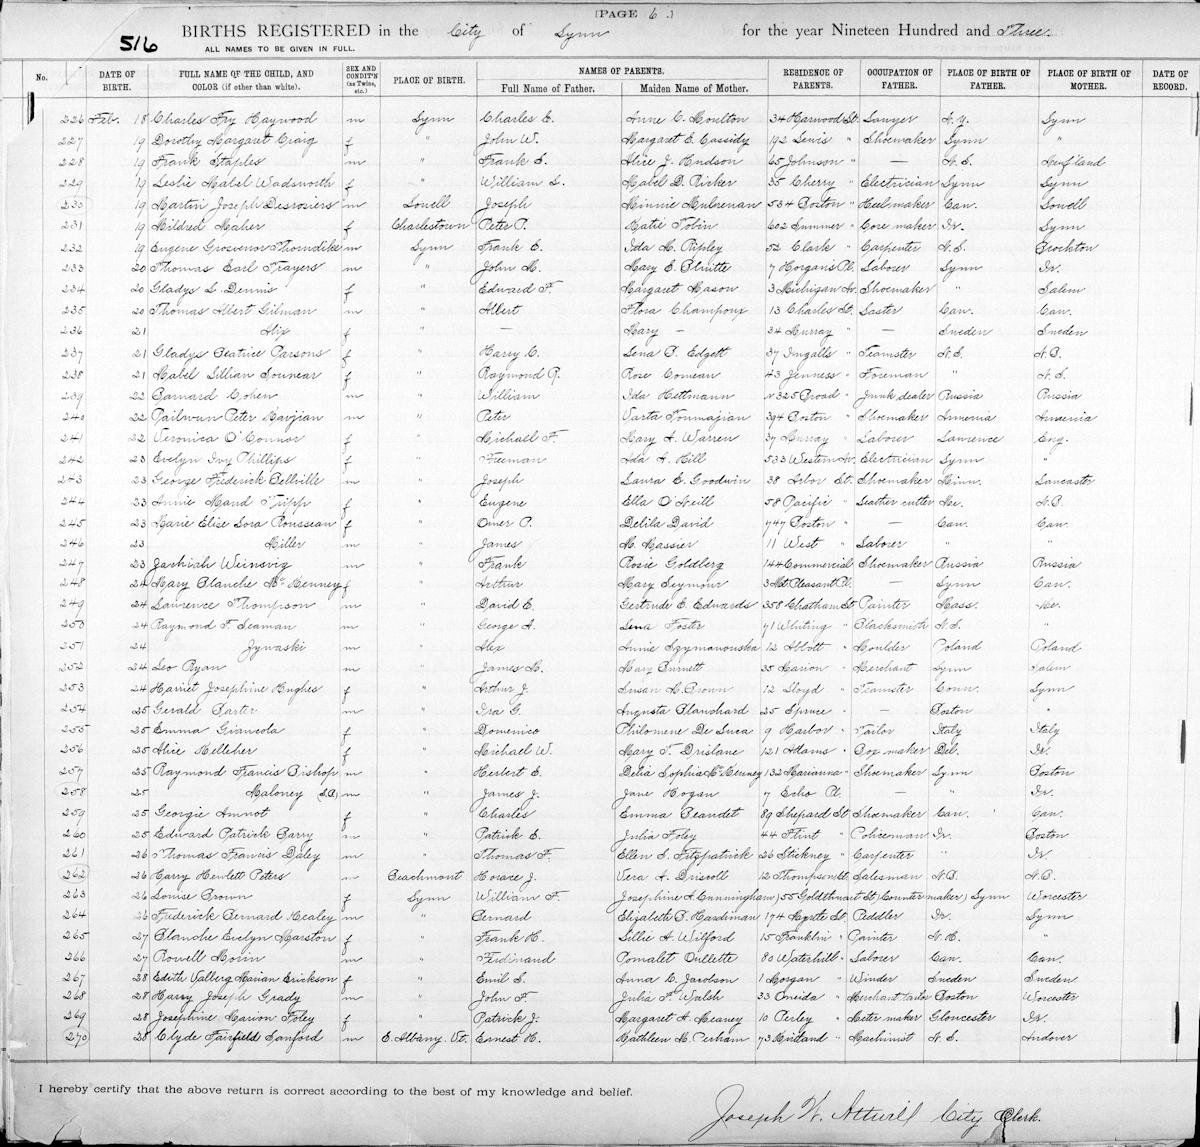 [PAGE 6.]
516 BIRTHS REGISTERED in the City of Lynn for the year Nineteen Hundred and Three.
ALL NAMES TO BE GIVEN IN FULL.
No. DATE OF BIRTH. FULL NAME OF THE CHILD, AND COLOR (if other than white). SEX AND CONDIT'N (as Twins, etc.) PLACE OF BIRTH. NAMES OF PARENTS. Full Name of Father. Maiden Name of Mother. RESIDENCE OF PARENTS. OCCUPATION OF FATHER. PLACE OF BIRTH OF FATHER. PLACE OF BIRTH OF MOTHER. DATE OF RECORD.
226 Feb. 18 Charles Fry Haywood m Lynn Charles E. Anne C. Moulton 34 Harwood St. Lawyer N.Y. Lynn
227 19 Dorothy Margaret Craig f " John W. Margaret E. Cassidy 192 Lewis " Shoemaker Lynn "
228 19 Frank Staples m " Frank S. Alice J. Hudson 65 Johnson " — N.S. Newf'land
229 19 Leslie Mabel Wadsworth f " William L. Mabel D. Ricker 35 Cherry " Electrician Lynn Lynn
230 19 Martin Joseph Desrosiers m Lowell Joseph Minnie Mulrenan 534 Boston " Heelmaker Can. Lowell
231 19 Mildred Maher f Charlestown Peter P. Katie Tobin 602 Summer " Core maker Ir. Lynn
232 19 Eugene Grosvenor Thorndike m Lynn Frank E. Ida M. Ripley 52 Clark " Carpenter N.S. Brockton
233 20 Thomas Earl Trayers m " John M. Mary E. Bluitte 7 Horgan's Pl. Laborer Lynn Ir.
234 20 Gladys L. Dennis f " Edward F. Margaret Mason 3 Michigan Av. Shoemaker " Salem
235 20 Thomas Albert Gilman m " Albert Flora Champoux 13 Charles St. Laster Can. Can.
236 21 Hix f " — Mary — 34 Murray " — Sweden Sweden
237 21 Gladys Beatrice Parsons f " Harry C. Lena B. Edgett 37 Ingalls " Teamster N.S. N.B.
238 21 Mabel Lillian f " Raymond R. Rose Comeau 43 Jenness " Foreman " N.S.
239 22 Barnard Cohen m " William Ida Hettmann N 325 Broad " Junk dealer Russia Russia
240 22 Peter m " Peter Varta Toumajian 394 Boston " Shoemaker Armenia Armenia
241 22 Veronica O'Connor f " Michael F. Mary A. Warren 37 Murray " Laborer Lawrence Eng.
242 23 Evelyn Ivy Phillips f " Freeman Ada A. Hill 533 Western Av. Electrician Lynn "
243 23 George Frederick Bellville m " Joseph Laura E. Goodwin 38 Arbor St. Shoemaker Minn. Lancaster
244 23 Annie Maud Tripp f " Eugene Ella O'Neill 58 Pacific " Leather cutter Me. N.B.
245 23 Marie Elise Lora Rousseau f " Omer P. Delila David 747 Boston " — Can. Can.
246 23 Miller m " James M. Massier 11 West " Laborer " "
247 23 Weinsvig m " Frank Rosie Goldberg 144 Commercial " Shoemaker Russia Russia
248 24 Mary Blanche McKenney f " Arthur Mary Seymour 3 Mt. Pleasant Pl. — Lynn Can.
249 24 Lawrence Thompson m " David E. Gertrude E. Edwards 358 Chatham St. Painter Mass. Me.
250 24 Raymond F. Seaman m " George A. Lena Foster 71 Whiting " Blacksmith N.S. "
251 24 Zywaski m " Alex Annie Szymanouska 12 Abbott " Moulder Poland Poland
252 24 Leo Ryan m " James M. Mary Burnett 35 Marion " Merchant Lynn Salem
253 24 Harriet Josephine Hughes f " Arthur J. Susan M. Brown 12 Lloyd " Teamster Conn. Lynn
254 25 Gerald Carter m " Ira G. Augusta Blanchard 25 Spruce " — Boston "
255 25 Emma f " Domenico Philomene De Luca 9 Harbor " Tailor Italy Italy
256 25 Alice Kelleher f " Michael W. Mary T. Drislane 121 Adams " Box maker Del. Ir.
257 25 Raymond Francis Bishop m " Herbert E. Delia Sophia McKenney 132 Marianna " Shoemaker Lynn Boston
258 25 Maloney (S.B.) m " James J. Jane Hogan 7 Echo Pl. — " Ir.
259 25 Georgie Amnot f " Charles Emma Beaudet 89 Shepard St. Shoemaker Can. Can.
260 25 Edward Patrick Barry m " Patrick E. Julia Foley 44 Flint " Policeman Ir. Boston
261 26 Thomas Francis Daley m " Thomas F. Ellen S. Fitzpatrick 26 Stickney " Carpenter " Ir.
262 26 Harry Hewlett Peters m Beachmont Horace J. Vera A. Driscoll 12 Thompson St. Salesman N.B. N.B.
263 26 Louise Brown f Lynn William F. Josephine A. Cunningham) 55 Goldthwait St (Counter maker) Lynn Worcester
264 26 Frederick Bernard Healey m " Bernard Elizabeth B. Hardiman 174 Myrtle St. Peddler Ir. Lynn
265 27 Blanche Evelyn Marston f " Frank H. Lillie A. Wilford 15 Franklin " Painter N.H. "
266 27 Rowell Morin m " Ferdinand Pomalet Ouellette 80 Waterhill " Laborer Can. Can.
267 28 Edith Valberg Marian Erickson f " Emil S. Anna C. Jacobson 1 Morgan " Winder Sweden Sweden
268 28 Harry Joseph Grady m " John F. Julia F. Walsh 33 Oneida " Merchant tailor Boston Worcester
269 28 Josephine Marion Foley f " Patrick J. Margaret A. Meaney 10 Perley " Meter maker Gloucester Ir.
270 28 Clyde Fairfield Sanford m E. Albany. Vt. Ernest H. Kathleen M. Perham 73 " Machinist N.S. Andover
I hereby certify that the above return is correct according to the best of my knowledge and belief.
Joseph W. Attwill City Clerk.